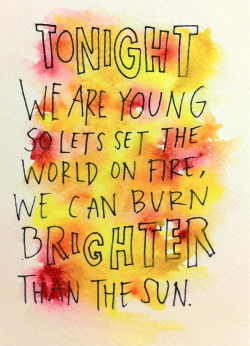 TONIGHT
WE ARE YOUNG
SO LETS SET THE
WORLD ON FIRE,
WE CAN BURN
BRIGHTER
THAN THE SUN.